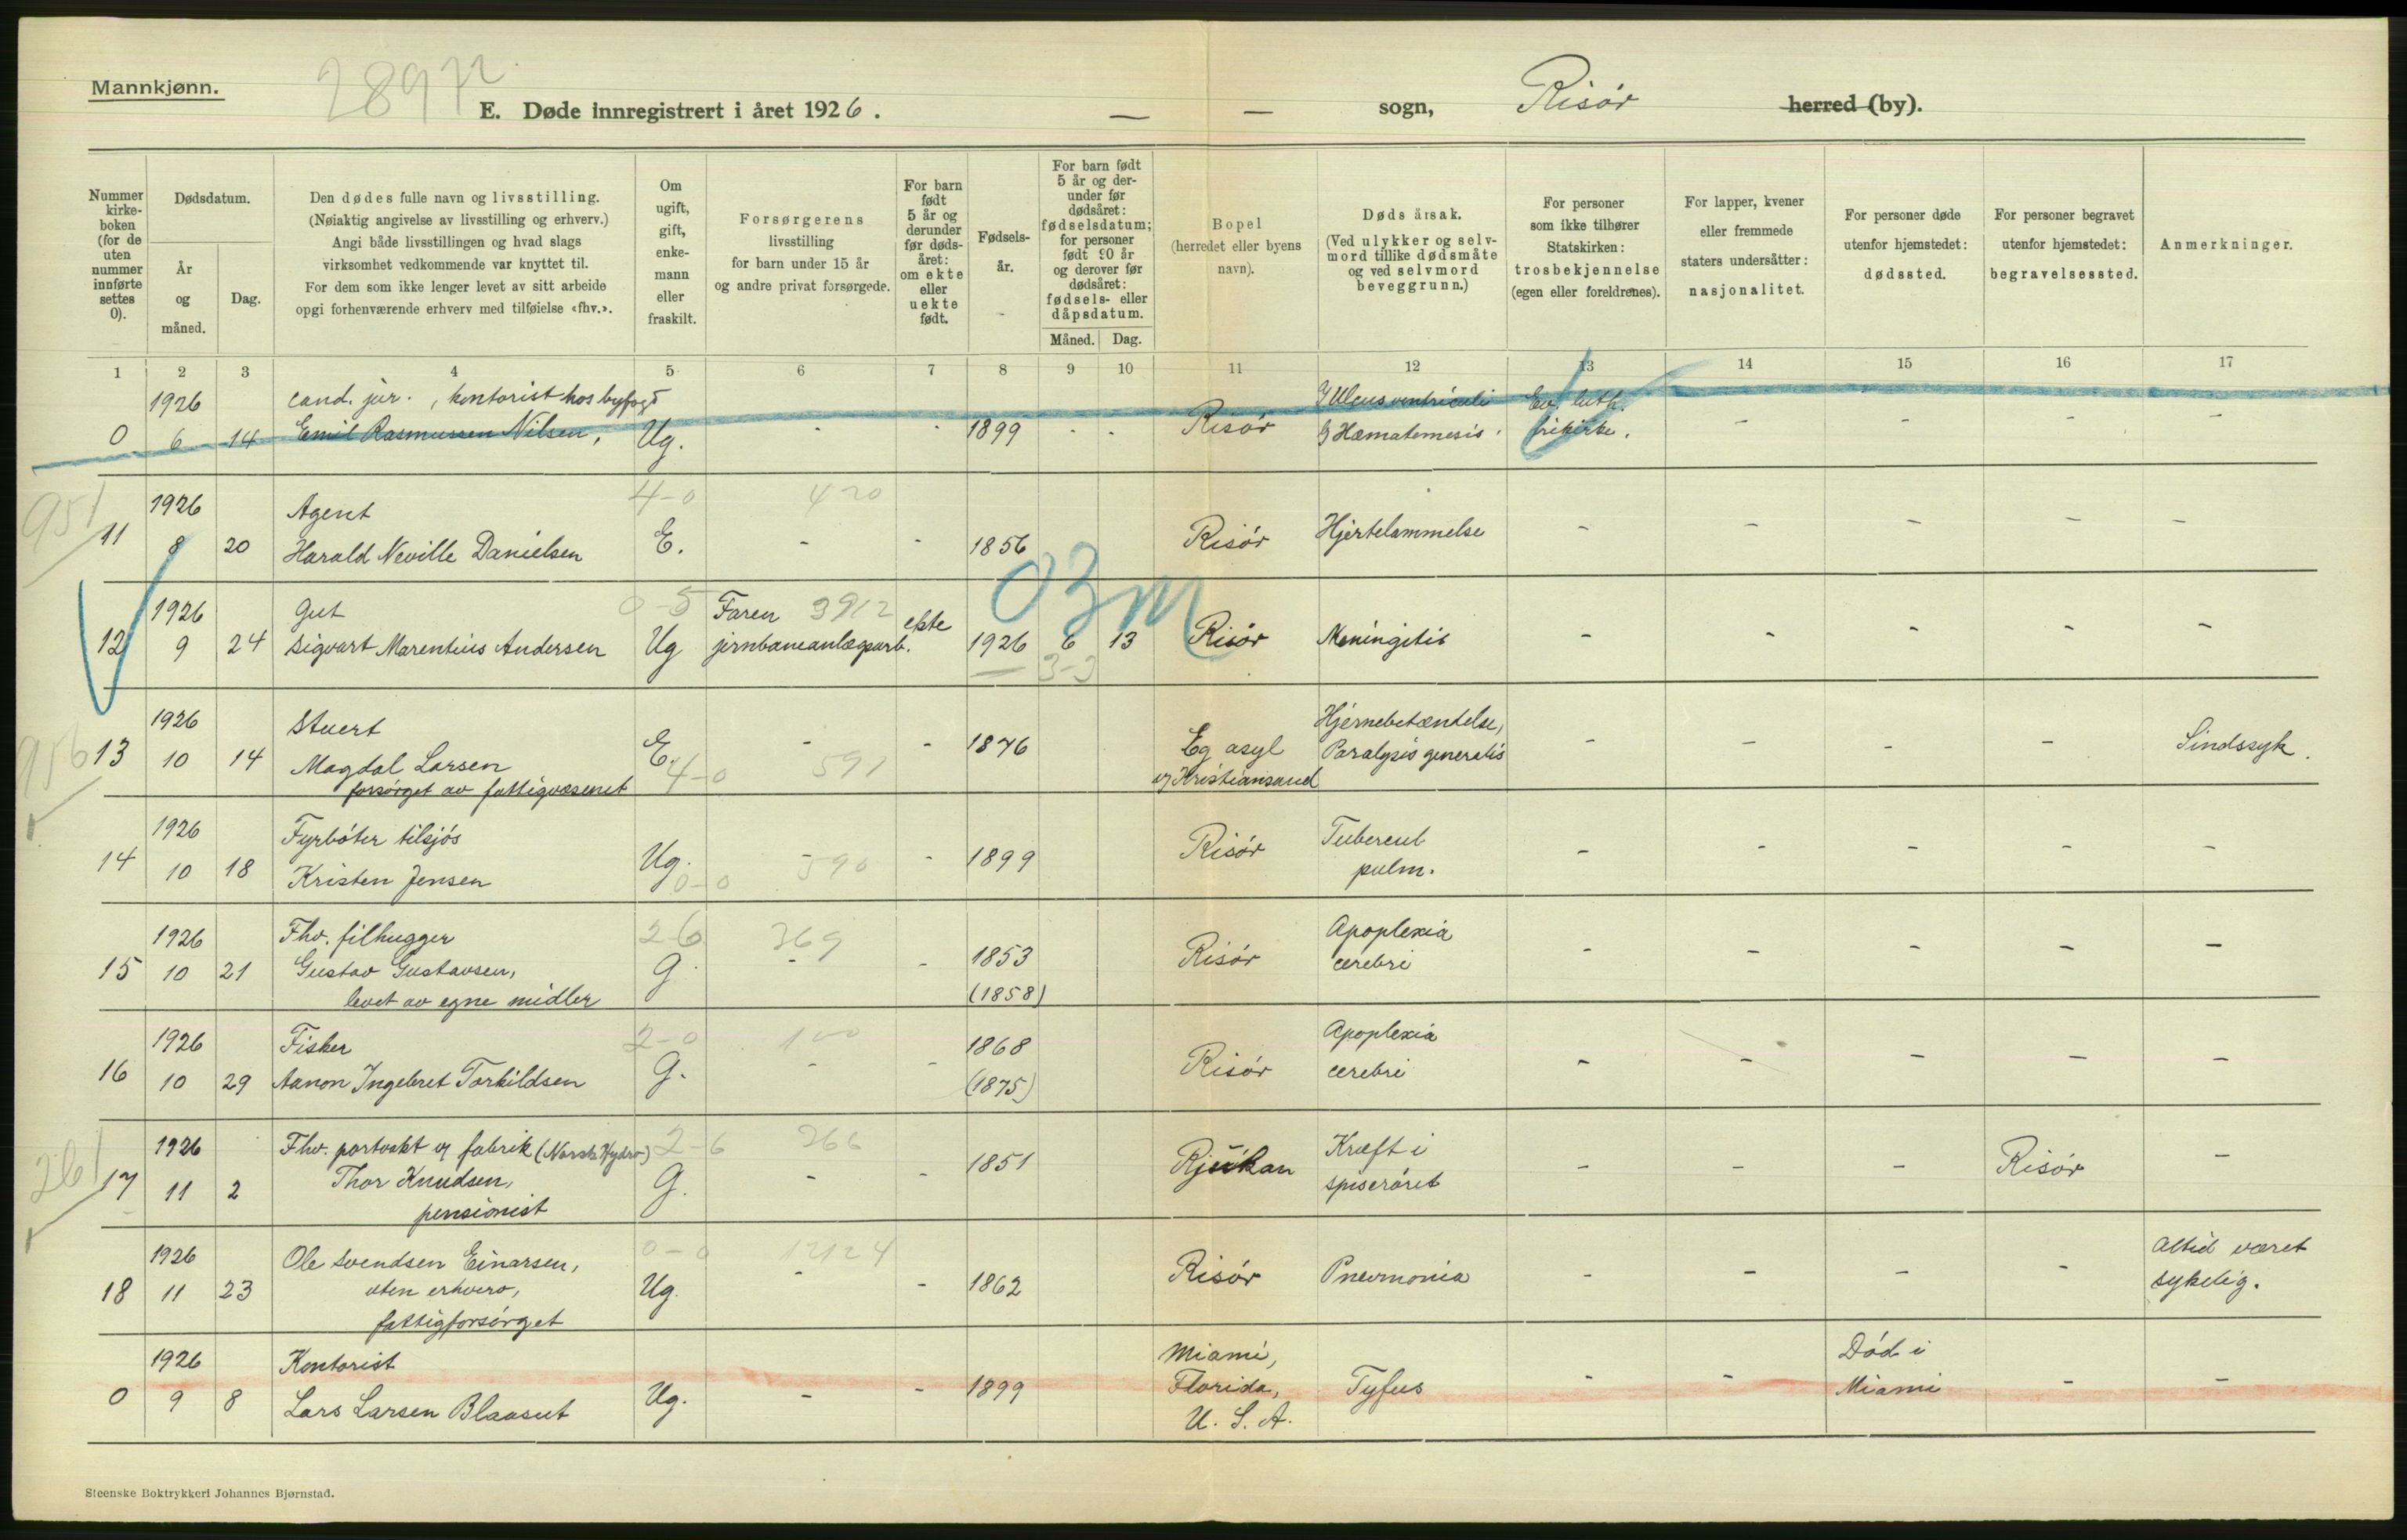 Mannkjønn.
2897
E. Døde innregistrert i året 1926. — — sogn, Risør herred (by).
Nummer kirke-boken (for de uten nummer innførte settes 0).
Dødsdatum.
År og måned.
Dag.
Den dødes fulle navn og livsstilling.
(Nøiaktig angivelse av livsstilling og erhverv.)
Angi både livsstillingen og hvad slags
virksomhet vedkommende var knyttet til.
For dem som ikke lenger levet av sitt arbeide
opgi forhenværende erhverv med tilføielse «fhv.».
Om ugift, gift, enke-mann eller fraskilt.
Forsørgerens
livsstilling
for barn under 15 år
og andre privat forsørgede.
For barn født 5 år og derunder før døds-året: om ekte eller uekte født.
Fødsels-år.
For barn født 5 år og der-under før dødsåret: fødselsdatum; for personer født 90 år og derover før dødsåret: fødsels- eller dåpsdatum.
Måned. Dag.
Bopel
(herredet eller byens
navn).
Dødsårsak.
(Ved ulykker og selv-
mord tillike dødsmåte
og ved selvmord
beveggrunn.)
For personer
som ikke tilhører
Statskirken:
trosbekjennelse
(egen eller foreldrenes).
For lapper, kvener
eller fremmede
staters undersåtter:
nasjonalitet.
For personer døde
utenfor hjemstedet:
dødssted.
For personer begravet
utenfor hjemstedet:
begravelsessted.
Anmerkninger.
1 2 3 4 5 6 7 8 9 10 11 12 13 14 15 16 17
1926 cand. jur., kontorist hos byfogd Ulcus ventriculi Ev. luth.
0 6 14 Emil Rasmussen Nilsen, Ug. - - 1899 - - Risør Hæmatemesis. frikirke. - - - -
951
1926 Agent 4-0 420
11 8 20 Harald Neville Danielsen E. - - 1856 Risør Hjertelammelse - - - - -
03m
1926 Gut 0-5 Faren 3912 ekte
12 9 24 Sigvart Marentius Andersen Ug jernbaneanlægsarb. 1926 6 13 Risør Meningitis - - - - -
3-3
956
1926 Stuert Hjernebetændelse,
13 10 14 Magdal Larsen E. - - 1876 Eg asyl Paralysis generalis - - - - Sindssyk.
forsørget av fattigvæsenet 4-0 591 Kristiansand
1926 Fyrbøter tilsjøs Tubercul
14 10 18 Kristen Jensen Ug. - - 1899 Risør pulm. - - - - -
0-0 590
1926 Fhv. filhugger 2-6 369 Apoplexia
15 10 21 Gustav Gustavsen, G. - - 1853 Risør cerebri - - - - -
levet av egne midler (1858)
1926 Fisker 2-0 100 1868 Apoplexia
16 10 29 Aanon Ingebret Torkildsen G. - - (1875) Risør cerebri - - - - -
261
1926 Fhv. portvakt fabrik (Norsk Hydro) 2-6 266 Kræft i
17 11 2 Thor Knudsen, G. - - 1851 Rjukan spiserøret - - - Risør -
pensionist
1926 Ole Svendsen Einarsen, 0-0 12124 Altid været
18 11 23 uten erhverv, Ug. - - 1862 Risør Pneumonia - - - - sykelig.
fattigforsørget
1926 Kontorist Miami, Død i
0 9 8 Lars Larsen Blaasut Ug. - - 1899 Florida, Tyfus - - Miami - -
U. S. A.
Steenske Boktrykkeri Johannes Bjørnstad.